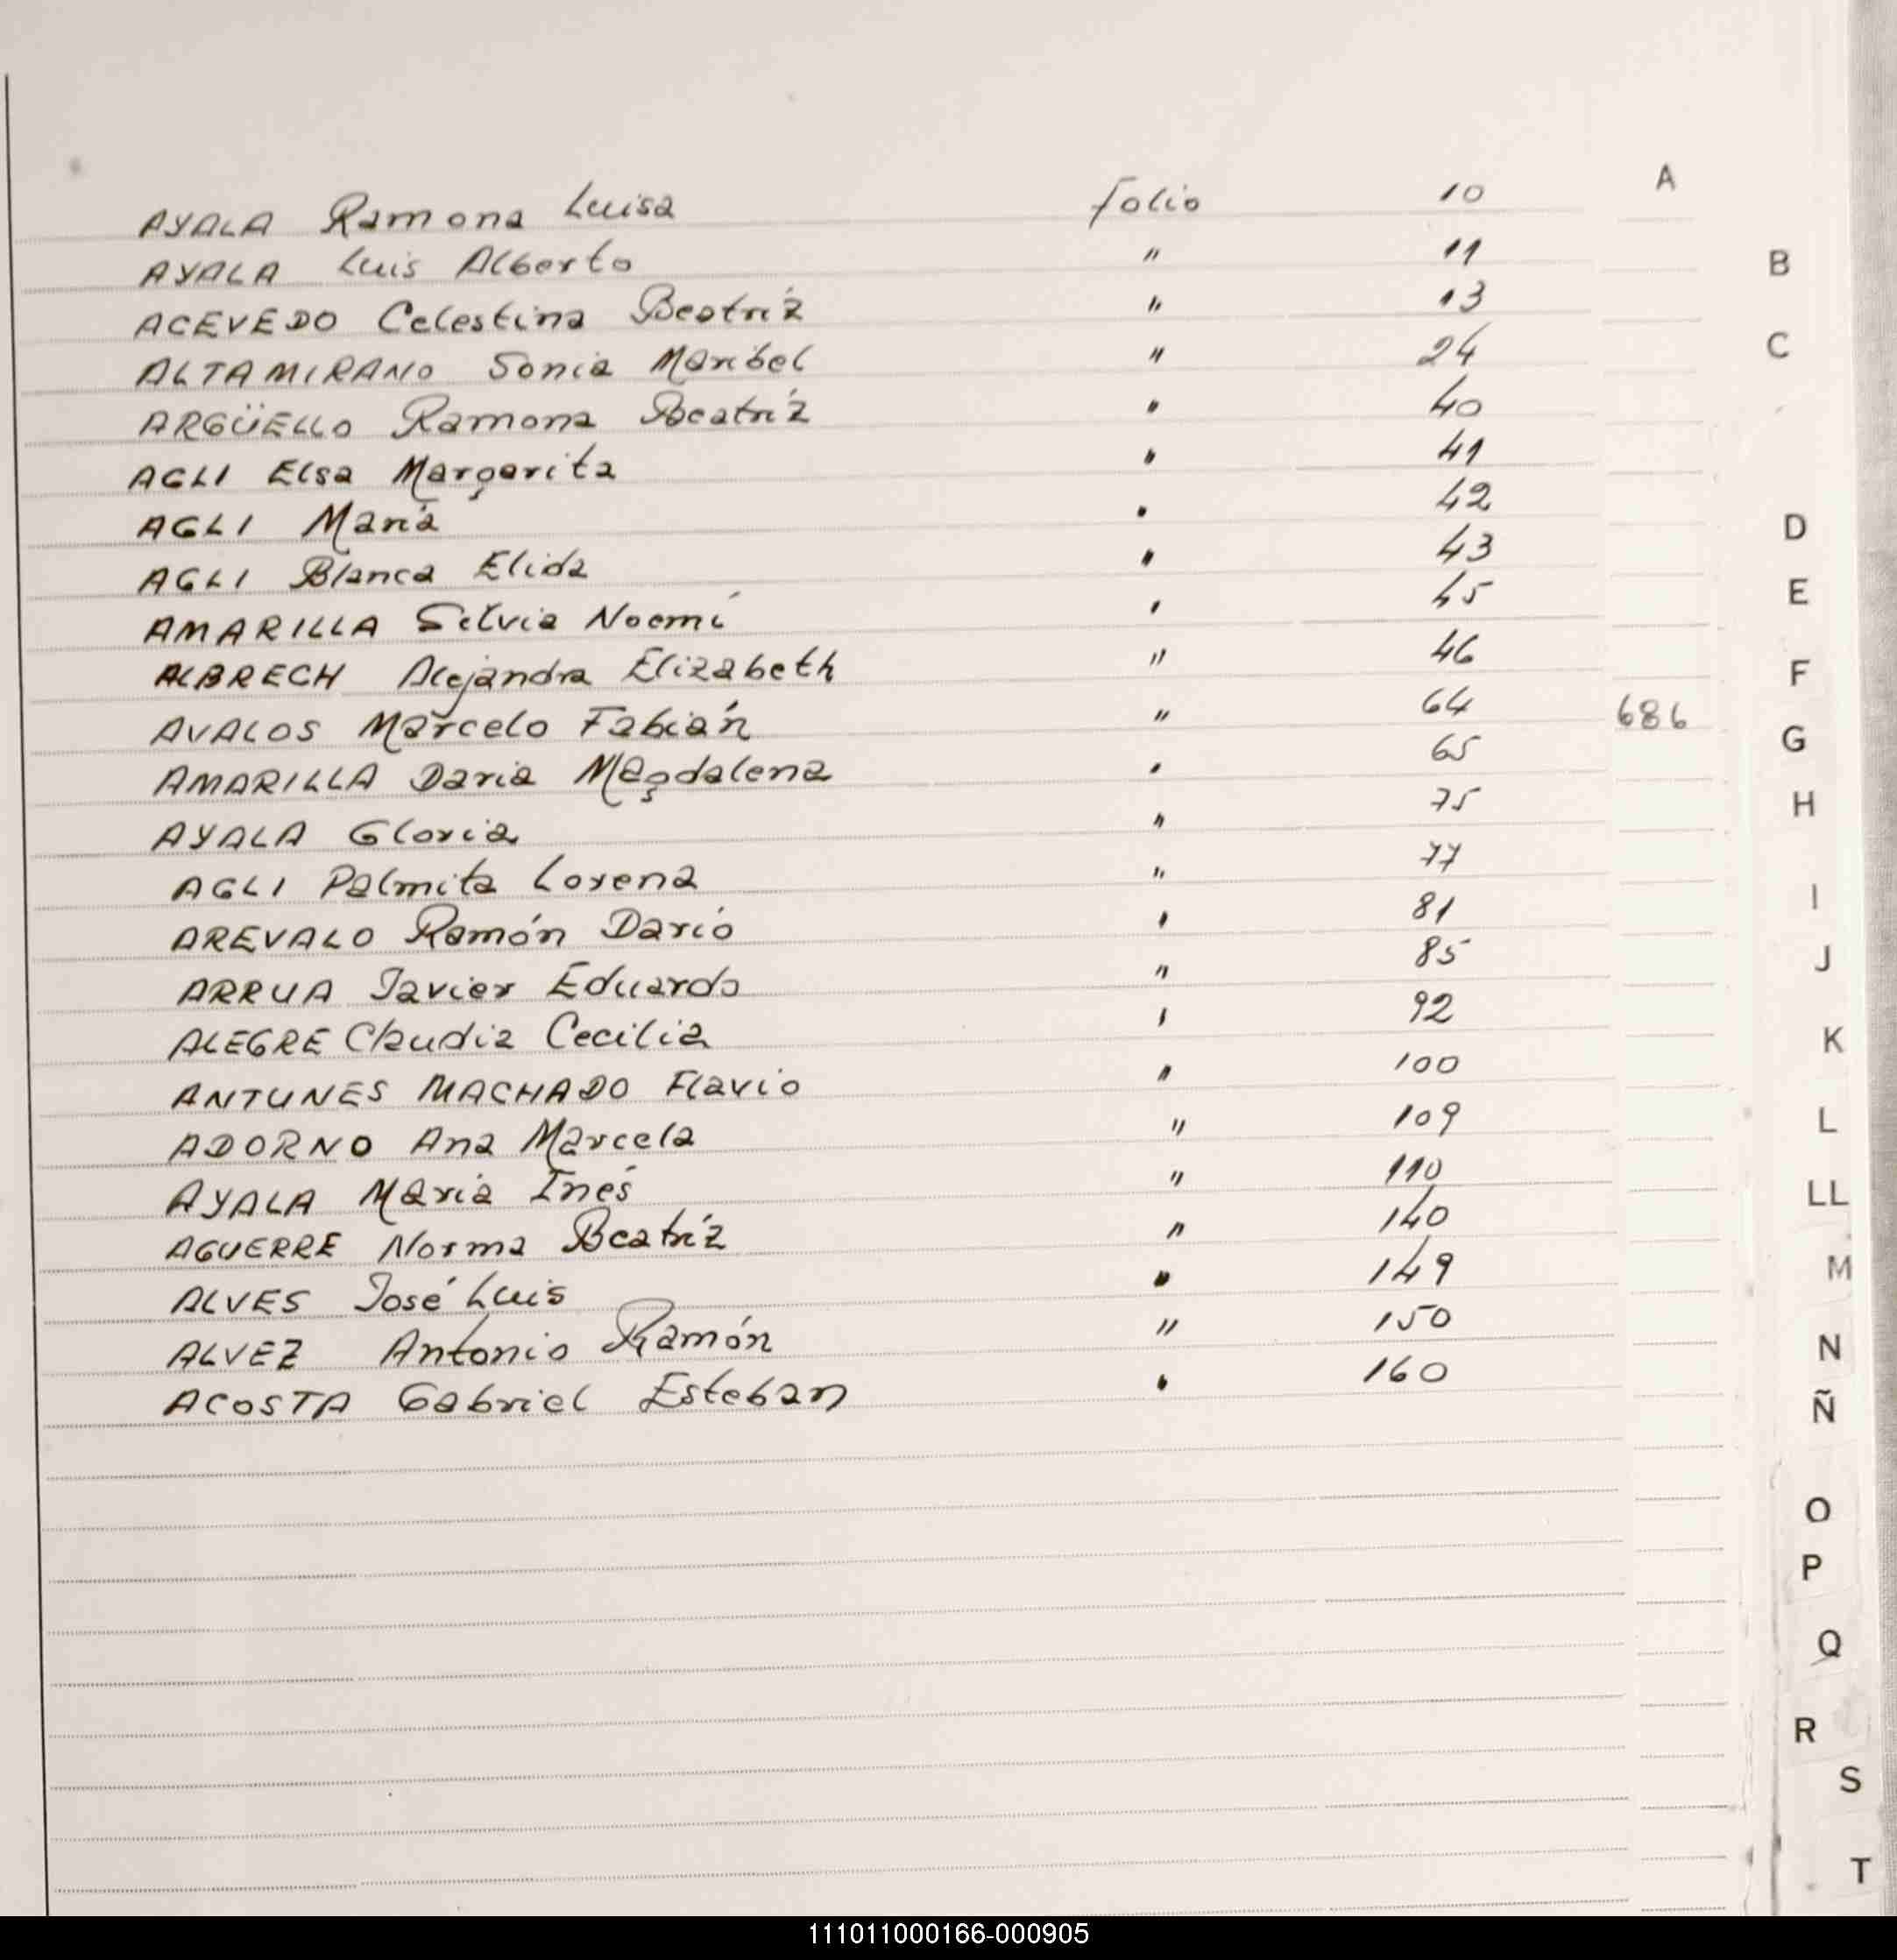 A
AYALA Ramona Luisa folio 10
AYALA Luis Alberto " 11
B
ACEVEDO Celestina Beatríz " 13
ALTAMIRANO Sonia Maribel " 24
C
ARGÜELLO Ramona Beatríz " 40
AGLI Elsa Margarita " 41
AGLI María " 42
D
AGLI Blanca Elida " 43
AMARILLA Silvia Noemí " 45
E
ALBRECH Alejandra Elizabeth " 46
F
AVALOS Marcelo Fabián " 64 686
G
AMARILLA Daria Magdalena " 65
AYALA Gloria " 75
H
AGLI Palmita Lorena " 77
I
AREVALO Ramón Darío " 81
ARRUA Javier Eduardo " 85
J
ALEGRE Claudia Cecilia " 92
K
ANTUNES MACHADO Flavio " 100
ADORNO Ana Marcela " 109
L
AYALA María Inés " 110
LL
AGUERRE Norma Beatríz " 140
ALVES José Luis " 149
M
ALVEZ Antonio Ramón " 150
N
ACOSTA Gabriel Esteban " 160
Ñ
O
P
Q
R
S
T
111011000166-000905